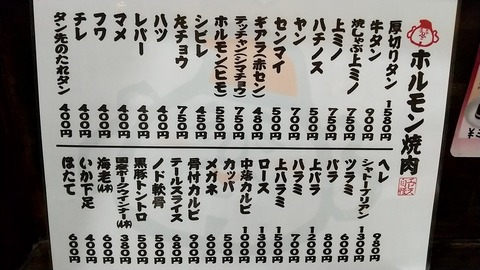 ホルモン焼肉
厚切りタン 1580円
牛タン 900円
焼しゃぶ上ミノ 750円
上ミノ 750円
ハチノス 500円
ヤン 700円
センマイ 500円
ギアラ(赤セン) 480円
テッチャン(シマチョウ) 750円
ホルモン(ヒモ) 500円
シビレ 450円
丸チョウ 400円
ハツ 400円
レバー 400円
マメ 400円
フワ 400円
チレ 400円
タン先のたれタン 400円
ヘレ 980円
シャトーブリアン
ツラミ 600円
バラ 800円
上バラ
ハラミ
上ハラミ
ロース
中落カルビ
カッパ 500円
メガネ 600円
骨付カルビ 900円
テールスライス 680円
ノド軟骨 500円
黒豚トントロ 500円
国産ポークウインナー(4本) 380円
海老(4本) 600円
いか下足 400円
ほたて 600円